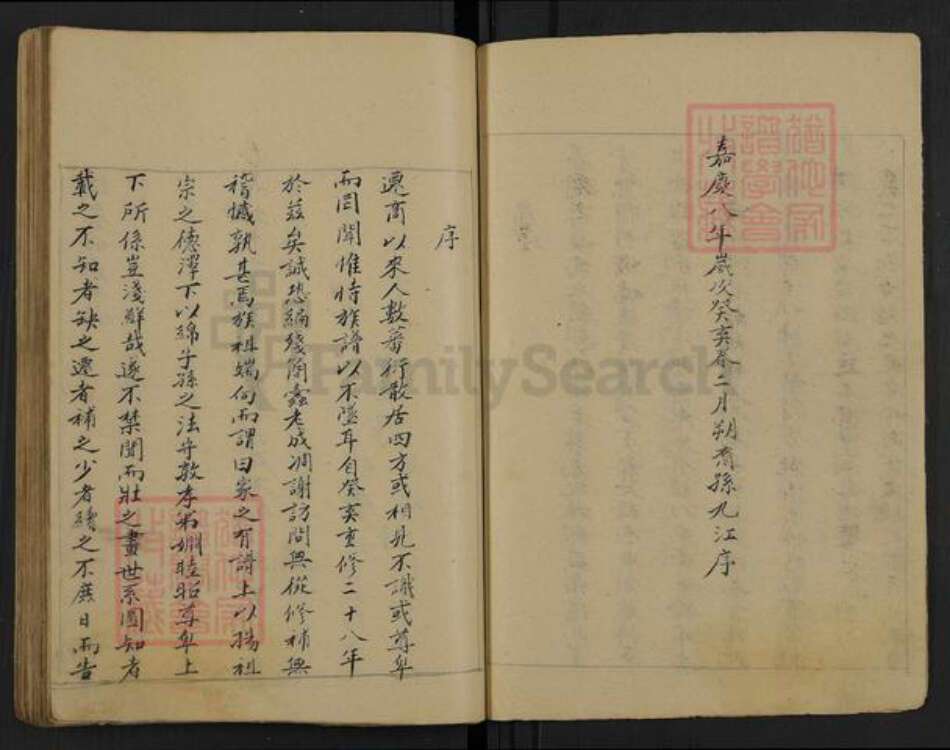 嘉慶八年歲次癸亥春二月朔裔孫九江序
序
遷商以來人數蕃衍散居四方或相見不識或尊卑
而罔聞惟恃族譜以不墜耳自癸亥重修二十八年
於茲矣誠恐編殘簡蠹老成凋謝訪問無從修補無
稽憾孰甚焉族祖端向而謂曰家之有譜上以揚祖
宗之德澤下以綿子孫之法守敦孝弟婣睦昭尊卑上
下所係豈淺鮮哉遂不禁聞而壯之畫世系圖知者
載之不知者缺之遷者補之少者續之不廢日而告
FamilySearch